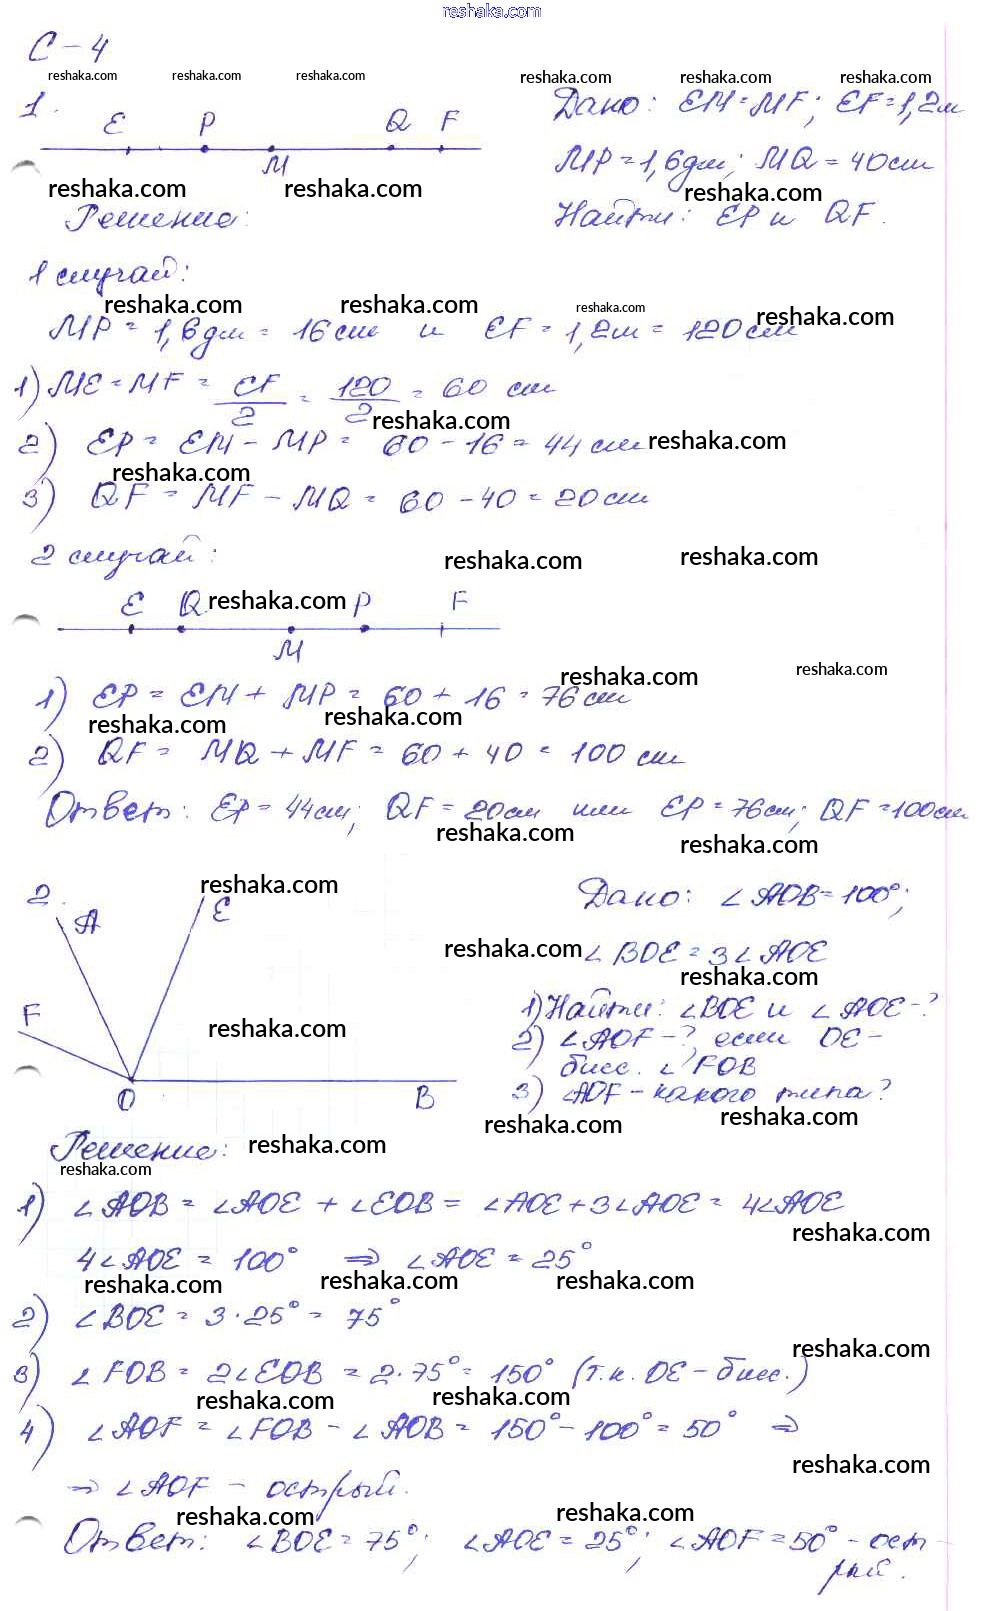 reshaka.com
С-4
reshaka.com reshaka.com reshaka.com reshaka.com reshaka.com reshaka.com
1. E P M Q F
Дано: EM = MF; EF = 1,2м
MP = 1,6дм; MQ = 40см
reshaka.com reshaka.com reshaka.com
Решение:
Найти: EP и QF.
1 случай:
reshaka.com reshaka.com reshaka.com reshaka.com
MP = 1,6дм = 16см и EF = 1,2м = 120см
1) ME = MF = EF/2 = 120/2 = 60 см
reshaka.com
2) EP = EM - MP = 60 - 16 = 44см
reshaka.com reshaka.com
3) QF = MF - MQ = 60 - 40 = 20см
2 случай:
reshaka.com reshaka.com
E Q M P F
reshaka.com
reshaka.com reshaka.com
1) EP = EM + MP = 60 + 16 = 76см
reshaka.com reshaka.com
2) QF = MQ + MF = 60 + 40 = 100 см
Ответ: EP = 44см; QF = 20см или EP = 76см; QF = 100см
reshaka.com reshaka.com
2. A E F O B
reshaka.com
Дано: ∠AOB = 100°;
reshaka.com ∠BOE = 3∠AOE
reshaka.com
1) Найти: ∠BOE и ∠AOE - ?
reshaka.com
2) ∠AOF - ?, если OE -
бисс. ∠FOB
3) ∠AOF - какого типа?
reshaka.com reshaka.com
Решение:
reshaka.com
reshaka.com
1) ∠AOB = ∠AOE + ∠EOB = ∠AOE + 3∠AOE = 4∠AOE
reshaka.com
4∠AOE = 100° ⇒ ∠AOE = 25°
reshaka.com reshaka.com reshaka.com
2) ∠BOE = 3·25° = 75°
reshaka.com
3) ∠FOB = 2∠EOB = 2·75° = 150° (т.к. OE - бисс.)
reshaka.com reshaka.com
4) ∠AOF = ∠FOB - ∠AOB = 150° - 100° = 50° ⇒
reshaka.com
⇒ ∠AOF - острый.
reshaka.com reshaka.com
Ответ: ∠BOE = 75°; ∠AOE = 25°; ∠AOF = 50° - ост-
рый.